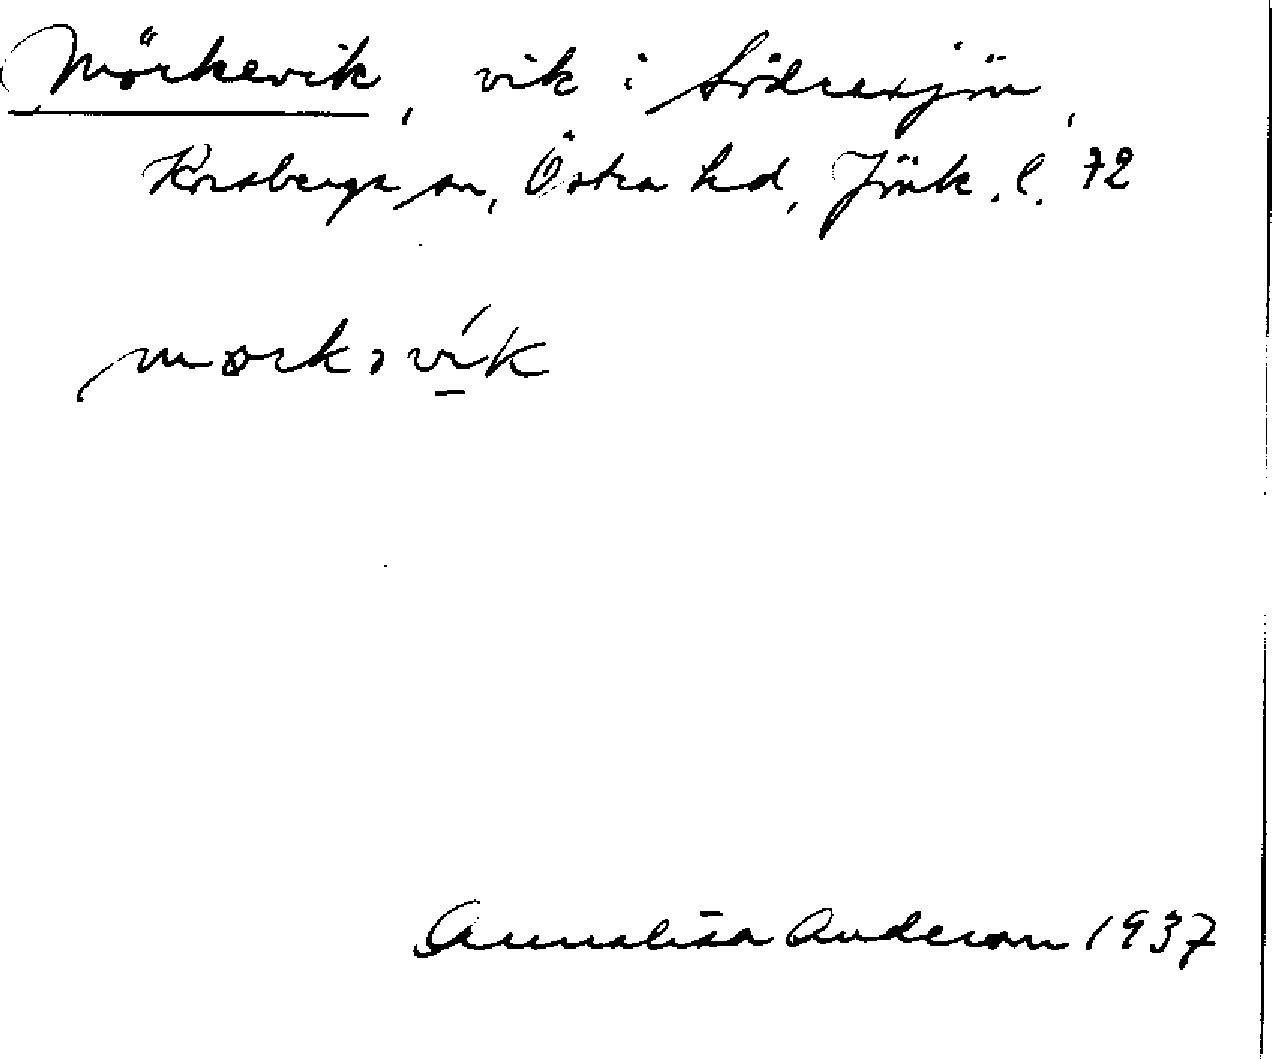 Mörkevik, vik i Södresjön,
Korsberga sn, Östra hd, Jönk. l. 72
mørkəvik
Annalisa Anderson 1937